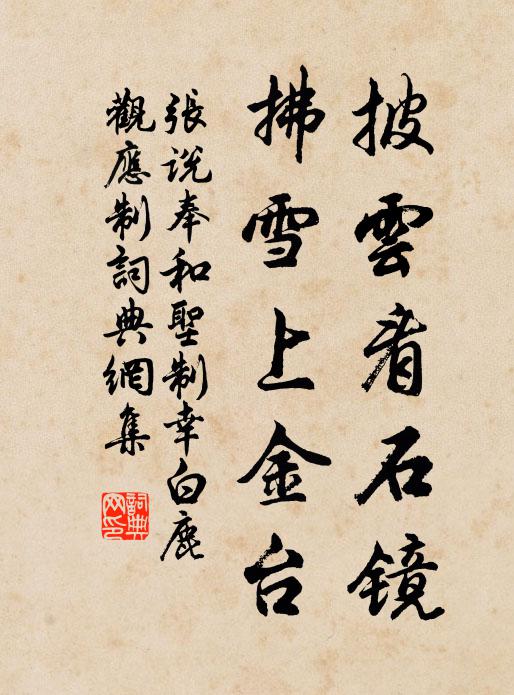 披雲看石鏡
拂雪上金台
張説奉和聖制幸白鹿
觀應制詞典網集
詞典
网印